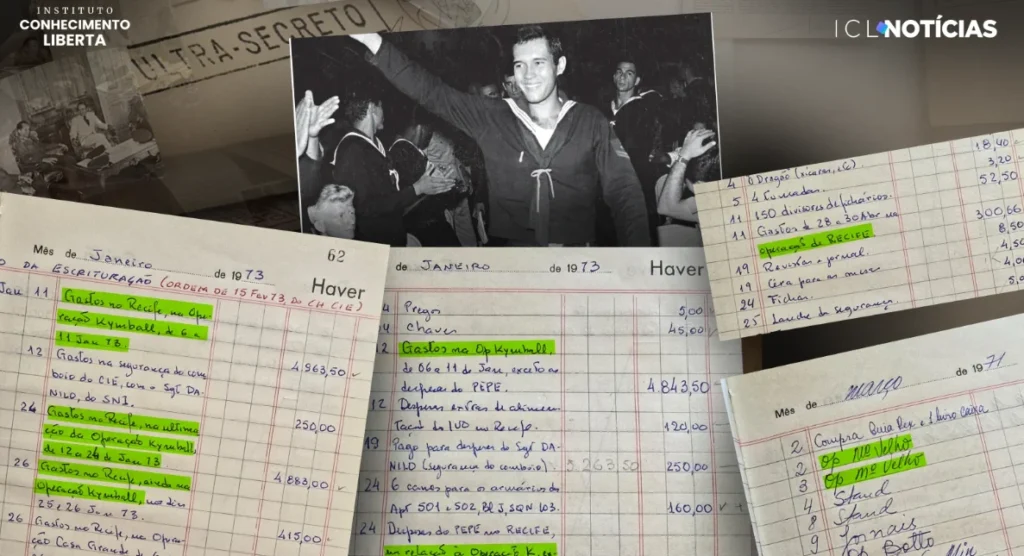 INSTITUTO
CONHECIMENTO
LIBERTA
ULTRA-SECRETO
ICL NOTÍCIAS
4 O Dragão
18,40
5 4 tomadas.
3,20
11 150 divisores de fichários.
52,50
11 Gastos de 28 a 30 Abr na
operação de RECIFE.
300,66
19 Revistas e jornal.
8,50
19 Cera para os móveis
4,50
24 Fichas.
25 Laudo de segurança.
62
Mês de Janeiro de 1973
Haver
DA ESCRITURAÇÃO (ORDEM DE 15 FEV 73 DO CH CIE)
Jan 11 Gastos no Recife, na Ope-
ração Kymball, de 6 a
11 Jan 73.
4.963,50
12 Gastos na segurança do com-
boio do CIE, com o Sgt DA-
NILO, do SNI.
250,00
24 Gastos no Recife, na última
ação da Operação Kymball,
de 12 a 24 de Jan 73
4.883,00
26 Gastos no Recife, ainda na
Operação Kymball, nos dias
25 e 26 Jan 73.
415,00
26 Gastos no Recife, na Ope-
ração Casa Grande
de JANEIRO de 1973
Haver
Pregos
5,00
chaves
45,00
12 Gastos na Op Kymball,
de 06 a 11 de Jan, exceto as
despesas do PEPE.
4.843,50
12 Despesas extras de alimen-
tação do IVO no Recife.
120,00
19 Pago para despesas do Sgt DA-
NILO (segurança do comboio)
5.263,50
250,00
24 6 canos para os armários do
Apt 501 e 502, Bl J, SQN 103.
160,00
24 Despesas do PEPE no RECIFE,
em relação a Operação K,
Mês de março de 1971
2 Compra Guia Rex e 1 livro caixa
2 Op Mº Velho
3 Op Mº Velho
4 Stand
8 Stand.
9 Jornais
Op Botto